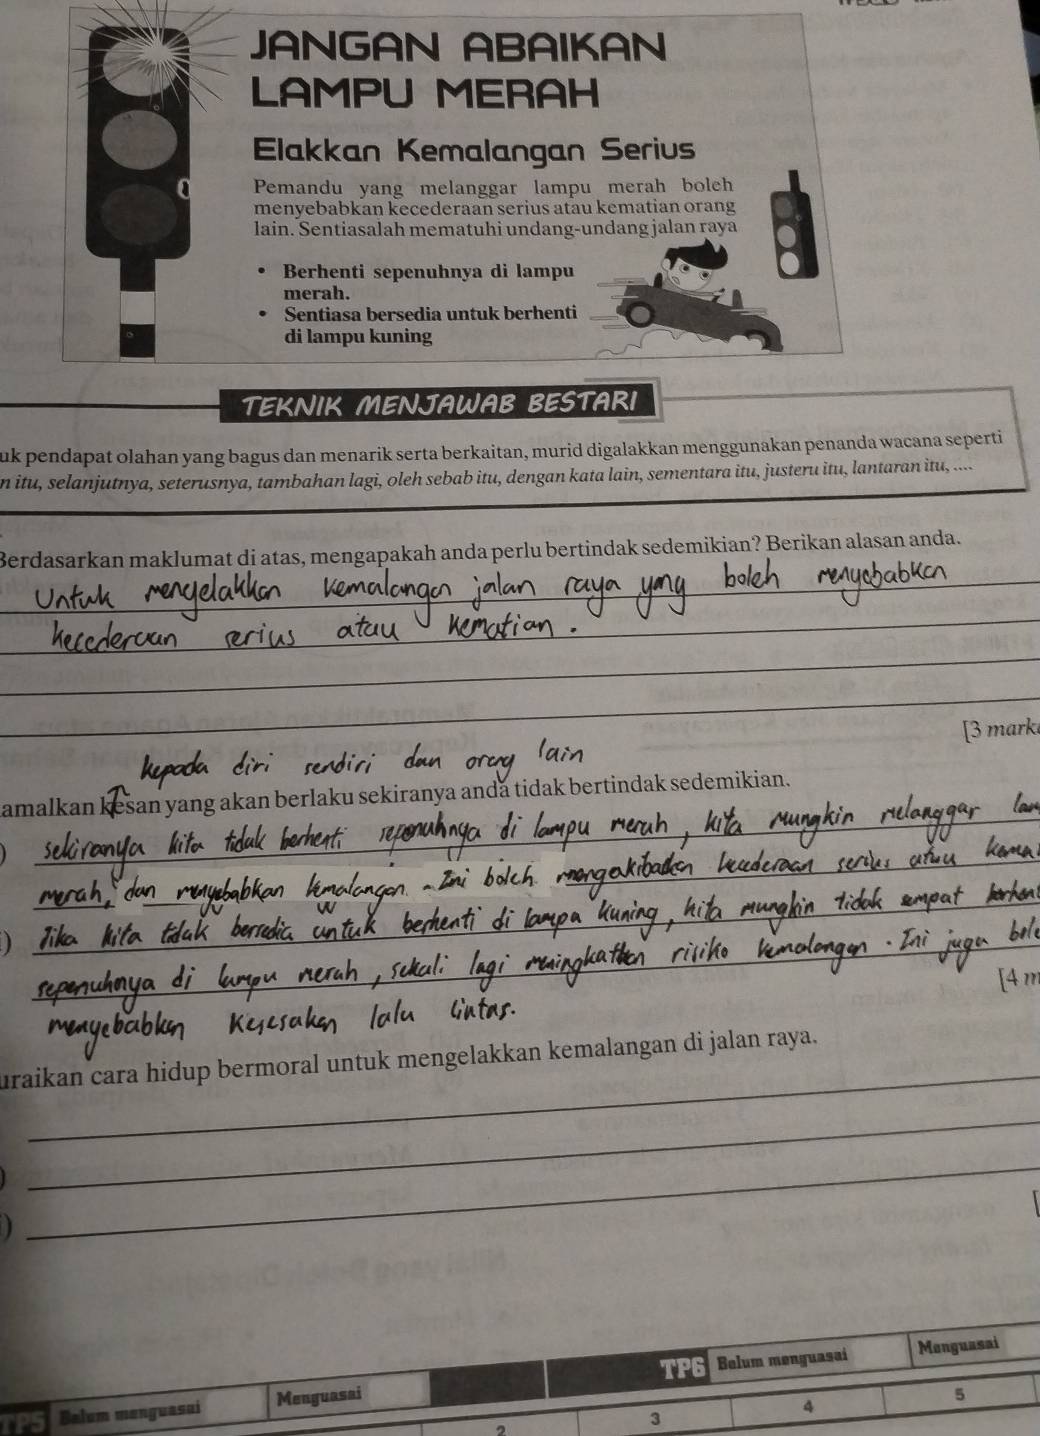 JANGAN ABAIKAN
LAMPU MERAH
Elakkan Kemalangan Serius
Pemandu yang melanggar lampu merah boleh
menyebabkan kecederaan serius atau kematian orang
lain. Sentiasalah mematuhi undang-undang jalan raya
• Berhenti sepenuhnya di lampu
merah.
• Sentiasa bersedia untuk berhenti
di lampu kuning
TEKNIK MENJAWAB BESTARI
uk pendapat olahan yang bagus dan menarik serta berkaitan, murid digalakkan menggunakan penanda wacana seperti
n itu, selanjutnya, seterusnya, tambahan lagi, oleh sebab itu, dengan kata lain, sementara itu, justeru itu, lantaran itu, ....
Berdasarkan maklumat di atas, mengapakah anda perlu bertindak sedemikian? Berikan alasan anda.
Untuk mengelakkan kemalangan jalan raya yang boleh menyebabkan
kecederaan serius atau kematian.
[3 mark
kepada diri sendiri dan orang lain
amalkan kesan yang akan berlaku sekiranya anda tidak bertindak sedemikian.
) sekiranya kita tidak berhenti sepenuhnya di lampu merah, kita mungkin melanggar lam
merah, dan menyebabkan kemalangan. Ini boleh mengakibatkan kecederaan serius atau kema
) Jika kita tidak bersedia untuk berhenti di lampu kuning, kita mungkin tidak sempat berhent
sepenuhnya di lampu merah, sekali lagi meningkatkan risiko kemalangan. Ini juga bole
[4 m
menyebabkan kesesakan lalu lintas.
uraikan cara hidup bermoral untuk mengelakkan kemalangan di jalan raya.
)
)
[
TP5 Belum menguasai Menguasai TP6 Belum menguasai Menguasai
2 3 4 5